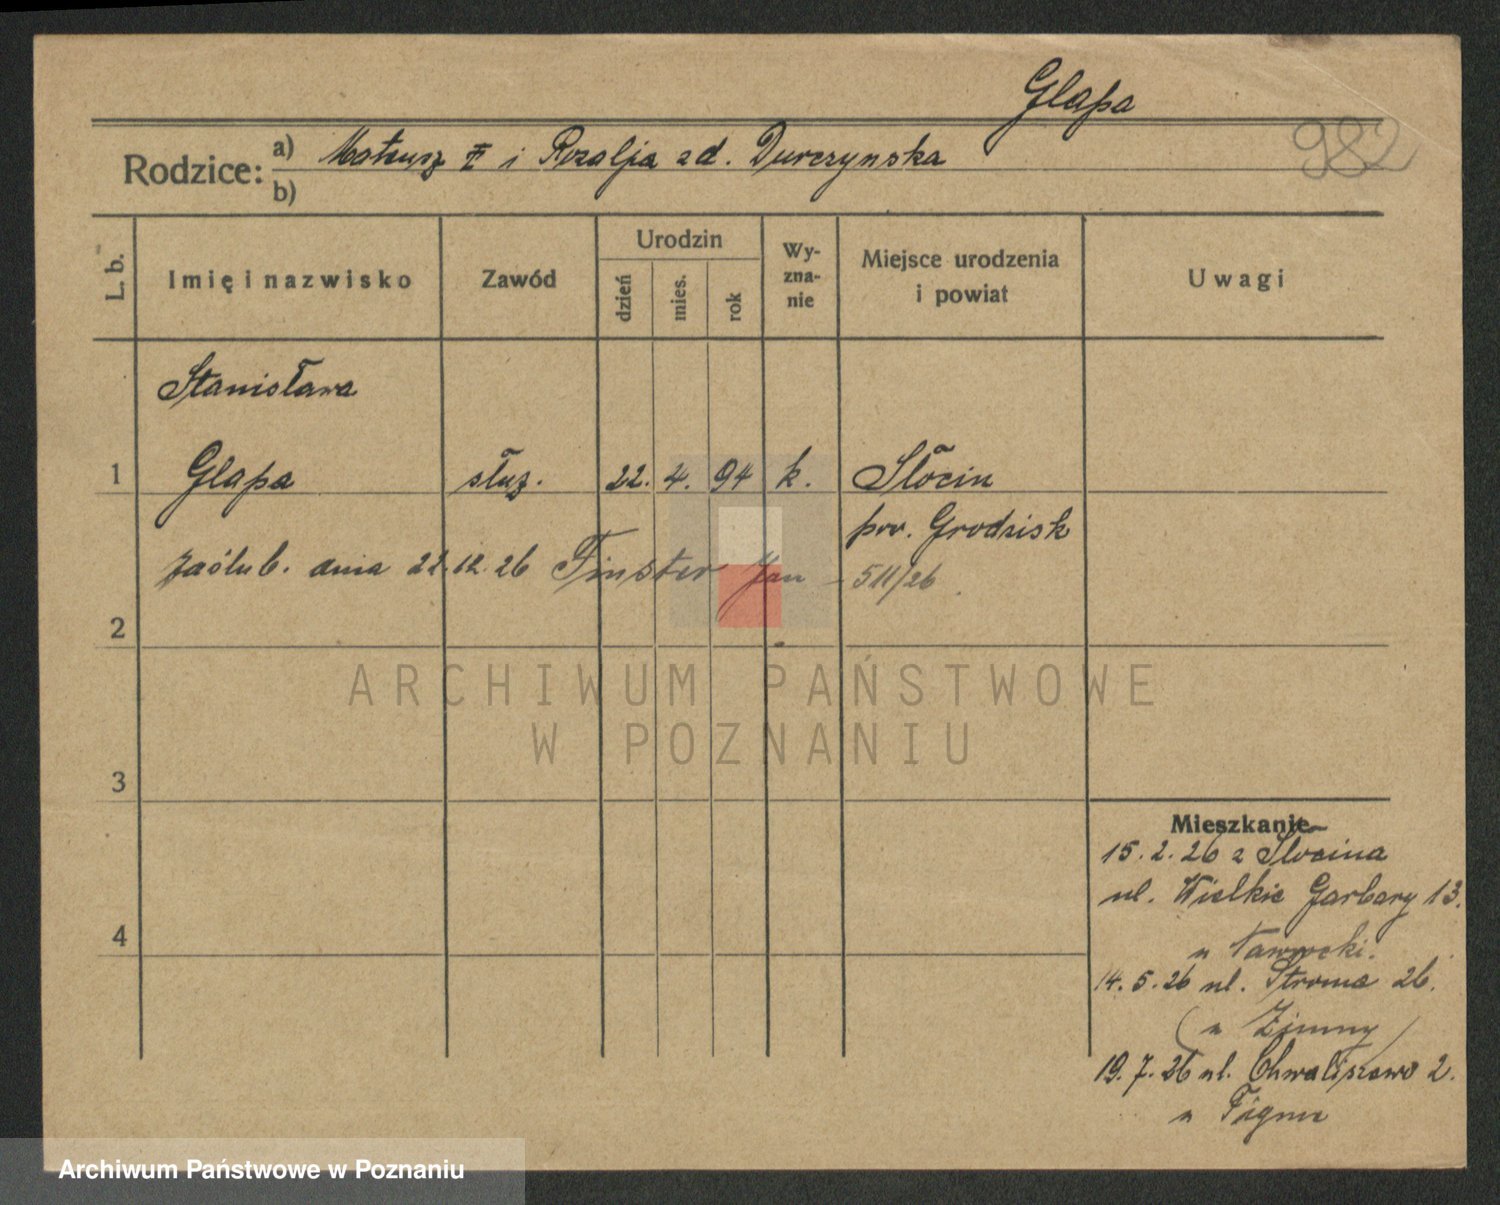 Glapa
982
Rodzice: a) Mateusz i Rozalja zd. Durczynska
b)
L. b. Imię i nazwisko Zawód Urodzin dzień mies. rok Wyznanie Miejsce urodzenia i powiat Uwagi
Stanisława
1 Glapa służ. 22. 4. 94 k. Słocin
pow. Grodzisk
zaślub. dnia 22.12.26 Finster Jan – 511/26
2
ARCHIWUM PAŃSTWOWE
W POZNANIU
3
Mieszkanie
15.2.26 z Słocina
ul. Wielkie Garbary 13.
4
u Ławecki.
14.5.26 ul. Stroma 26.
(u Zimny)
19.7.26 ul. Chwaliszewo 2.
u
Archiwum Państwowe w Poznaniu